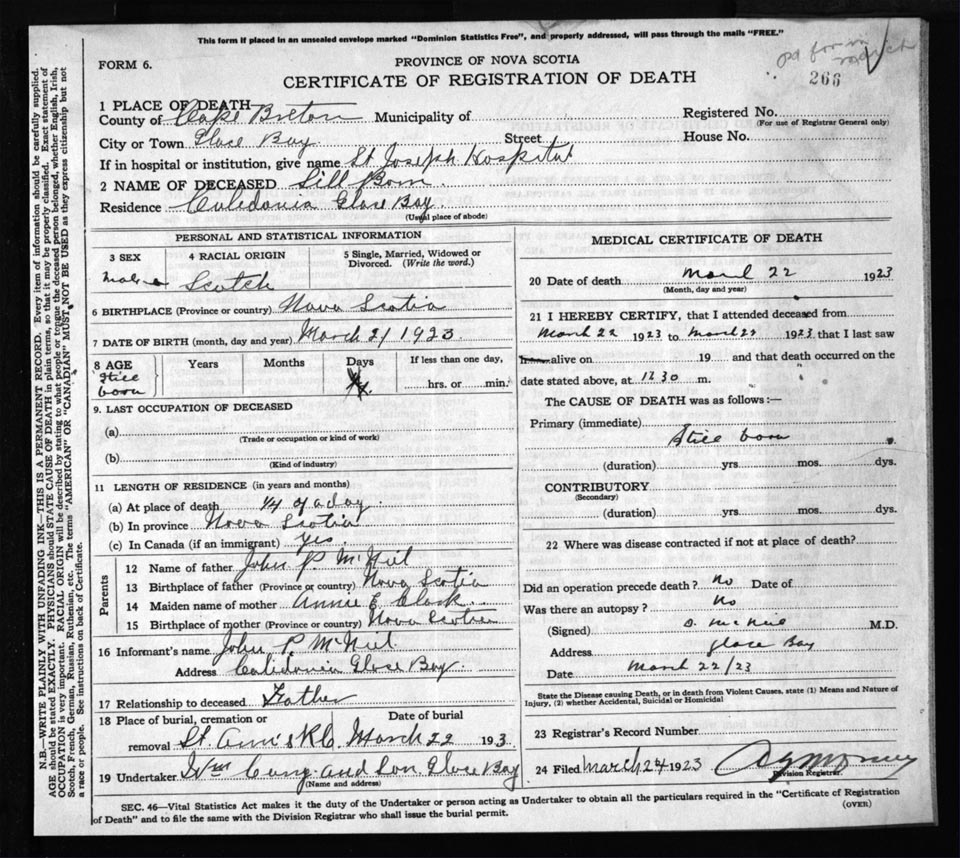 This form if placed in an unsealed envelope marked "Dominion Statistics Free", and properly addressed, will pass through the mails "FREE."
FORM 6.
PROVINCE OF NOVA SCOTIA
CERTIFICATE OF REGISTRATION OF DEATH
266
1 PLACE OF DEATH
County of Cape Breton Municipality of
Registered No.
(For use of Registrar General only)
City or Town Glace Bay Street House No.
If in hospital or institution, give name St Joseph Hospital
2 NAME OF DECEASED Still Born
Residence Caledonia Glace Bay
(Usual place of abode)
PERSONAL AND STATISTICAL INFORMATION
3 SEX 4 RACIAL ORIGIN 5 Single, Married, Widowed or Divorced. (Write the word.)
Male Scotch
6 BIRTHPLACE (Province or country) Nova Scotia
7 DATE OF BIRTH (month, day and year) March 21 1923
8 AGE Years Months Days If less than one day,
Still born hrs. or min.
9. LAST OCCUPATION OF DECEASED
(a)
(Trade or occupation or kind of work)
(b)
(Kind of industry)
11 LENGTH OF RESIDENCE (in years and months)
(a) At place of death 1/4 of a day
(b) In province Nova Scotia
(c) In Canada (if an immigrant) yes
Parents
12 Name of father John P McNeil
13 Birthplace of father (Province or country) Nova Scotia
14 Maiden name of mother Annie E Clark
15 Birthplace of mother (Province or country) Nova Scotia
16 Informant's name John P. McNeil
Address Calidonia Glace Bay.
17 Relationship to deceased Father
18 Place of burial, cremation or removal St. Ann's R C. Date of burial March 22 193
19 Undertaker Wm Curry and Son Glace Bay
(Name and address)
MEDICAL CERTIFICATE OF DEATH
20 Date of death March 22 1923
(Month, day and year)
21 I HEREBY CERTIFY, that I attended deceased from
March 22 1923 to March 22 1923 that I last saw
alive on 19 and that death occurred on the
date stated above, at 12 30 m.
The CAUSE OF DEATH was as follows:—
Primary (immediate)
Still born
(duration) yrs. mos. dys.
CONTRIBUTORY
(Secondary)
(duration) yrs. mos. dys.
22 Where was disease contracted if not at place of death?
Did an operation precede death? no Date of
Was there an autopsy? No
(Signed) McNeil M.D.
Address Glace Bay
Date March 22/23
State the Disease causing Death, or in death from Violent Causes, state (1) Means and Nature of
Injury, (2) whether Accidental, Suicidal or Homicidal
23 Registrar's Record Number
24 Filed March 24 1923
Division Registrar
SEC. 46—Vital Statistics Act makes it the duty of the Undertaker or person acting as Undertaker to obtain all the particulars required in the "Certificate of Registration
of Death" and to file the same with the Division Registrar who shall issue the burial permit.
(OVER)
N.B.—WRITE PLAINLY WITH UNFADING INK—THIS IS A PERMANENT RECORD. Every item of information should be carefully supplied.
AGE should be stated EXACTLY. PHYSICIANS should STATE CAUSE OF DEATH in plain terms, so that it may be properly classified. Exact statement of
OCCUPATION is very important. RACIAL ORIGIN will be described by stating to what people or tongue the deceased person belonged, whether English, Irish,
Scotch, French, German, Russian, Ruthenian, etc. The terms "AMERICAN" OR "CANADIAN" MUST NOT BE USED as they express citizenship but not
a race or people. See instructions on back of Certificate.